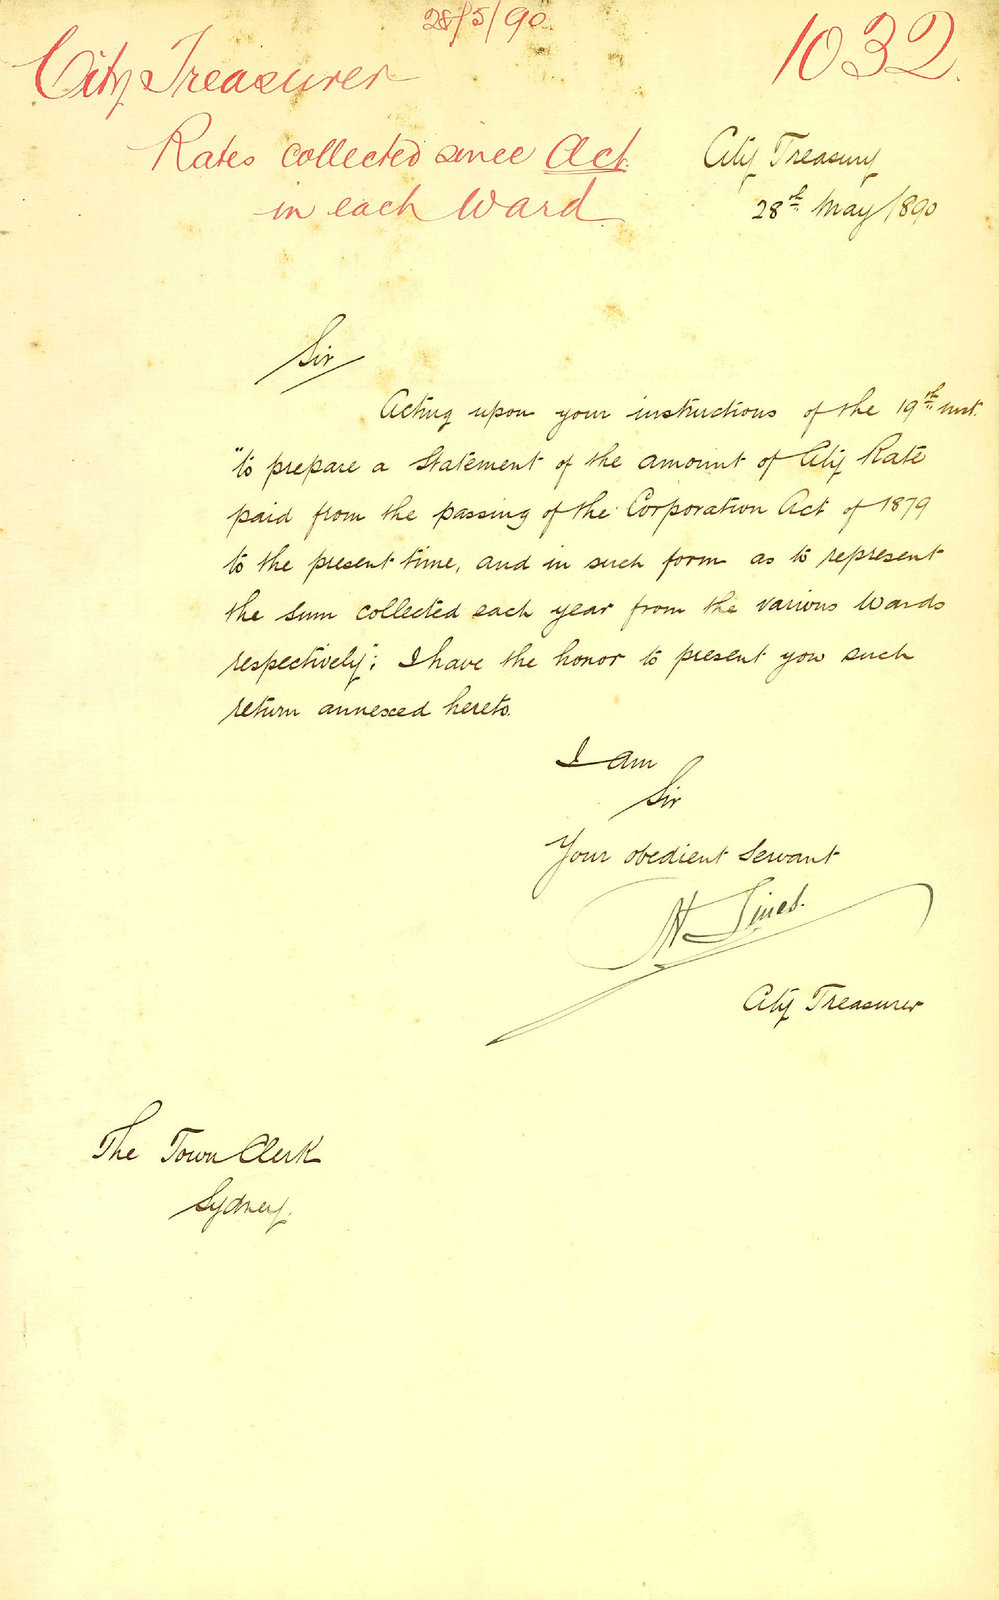 28/5/90
1032.
City Treasurer
Rates collected since Act
in each Ward
City Treasury
28th May/1890
Sir
Acting upon your instructions of the 19th inst.
"to prepare a Statement of the amount of City Rate
paid from the passing of the Corporation Act of 1879
to the present time, and in such form as to represent
the sum collected each year from the various Wards
respectively"; I have the honor to present you such
return annexed hereto.
I am
Sir
Your obedient servant
City Treasurer
The Town Clerk
Sydney.